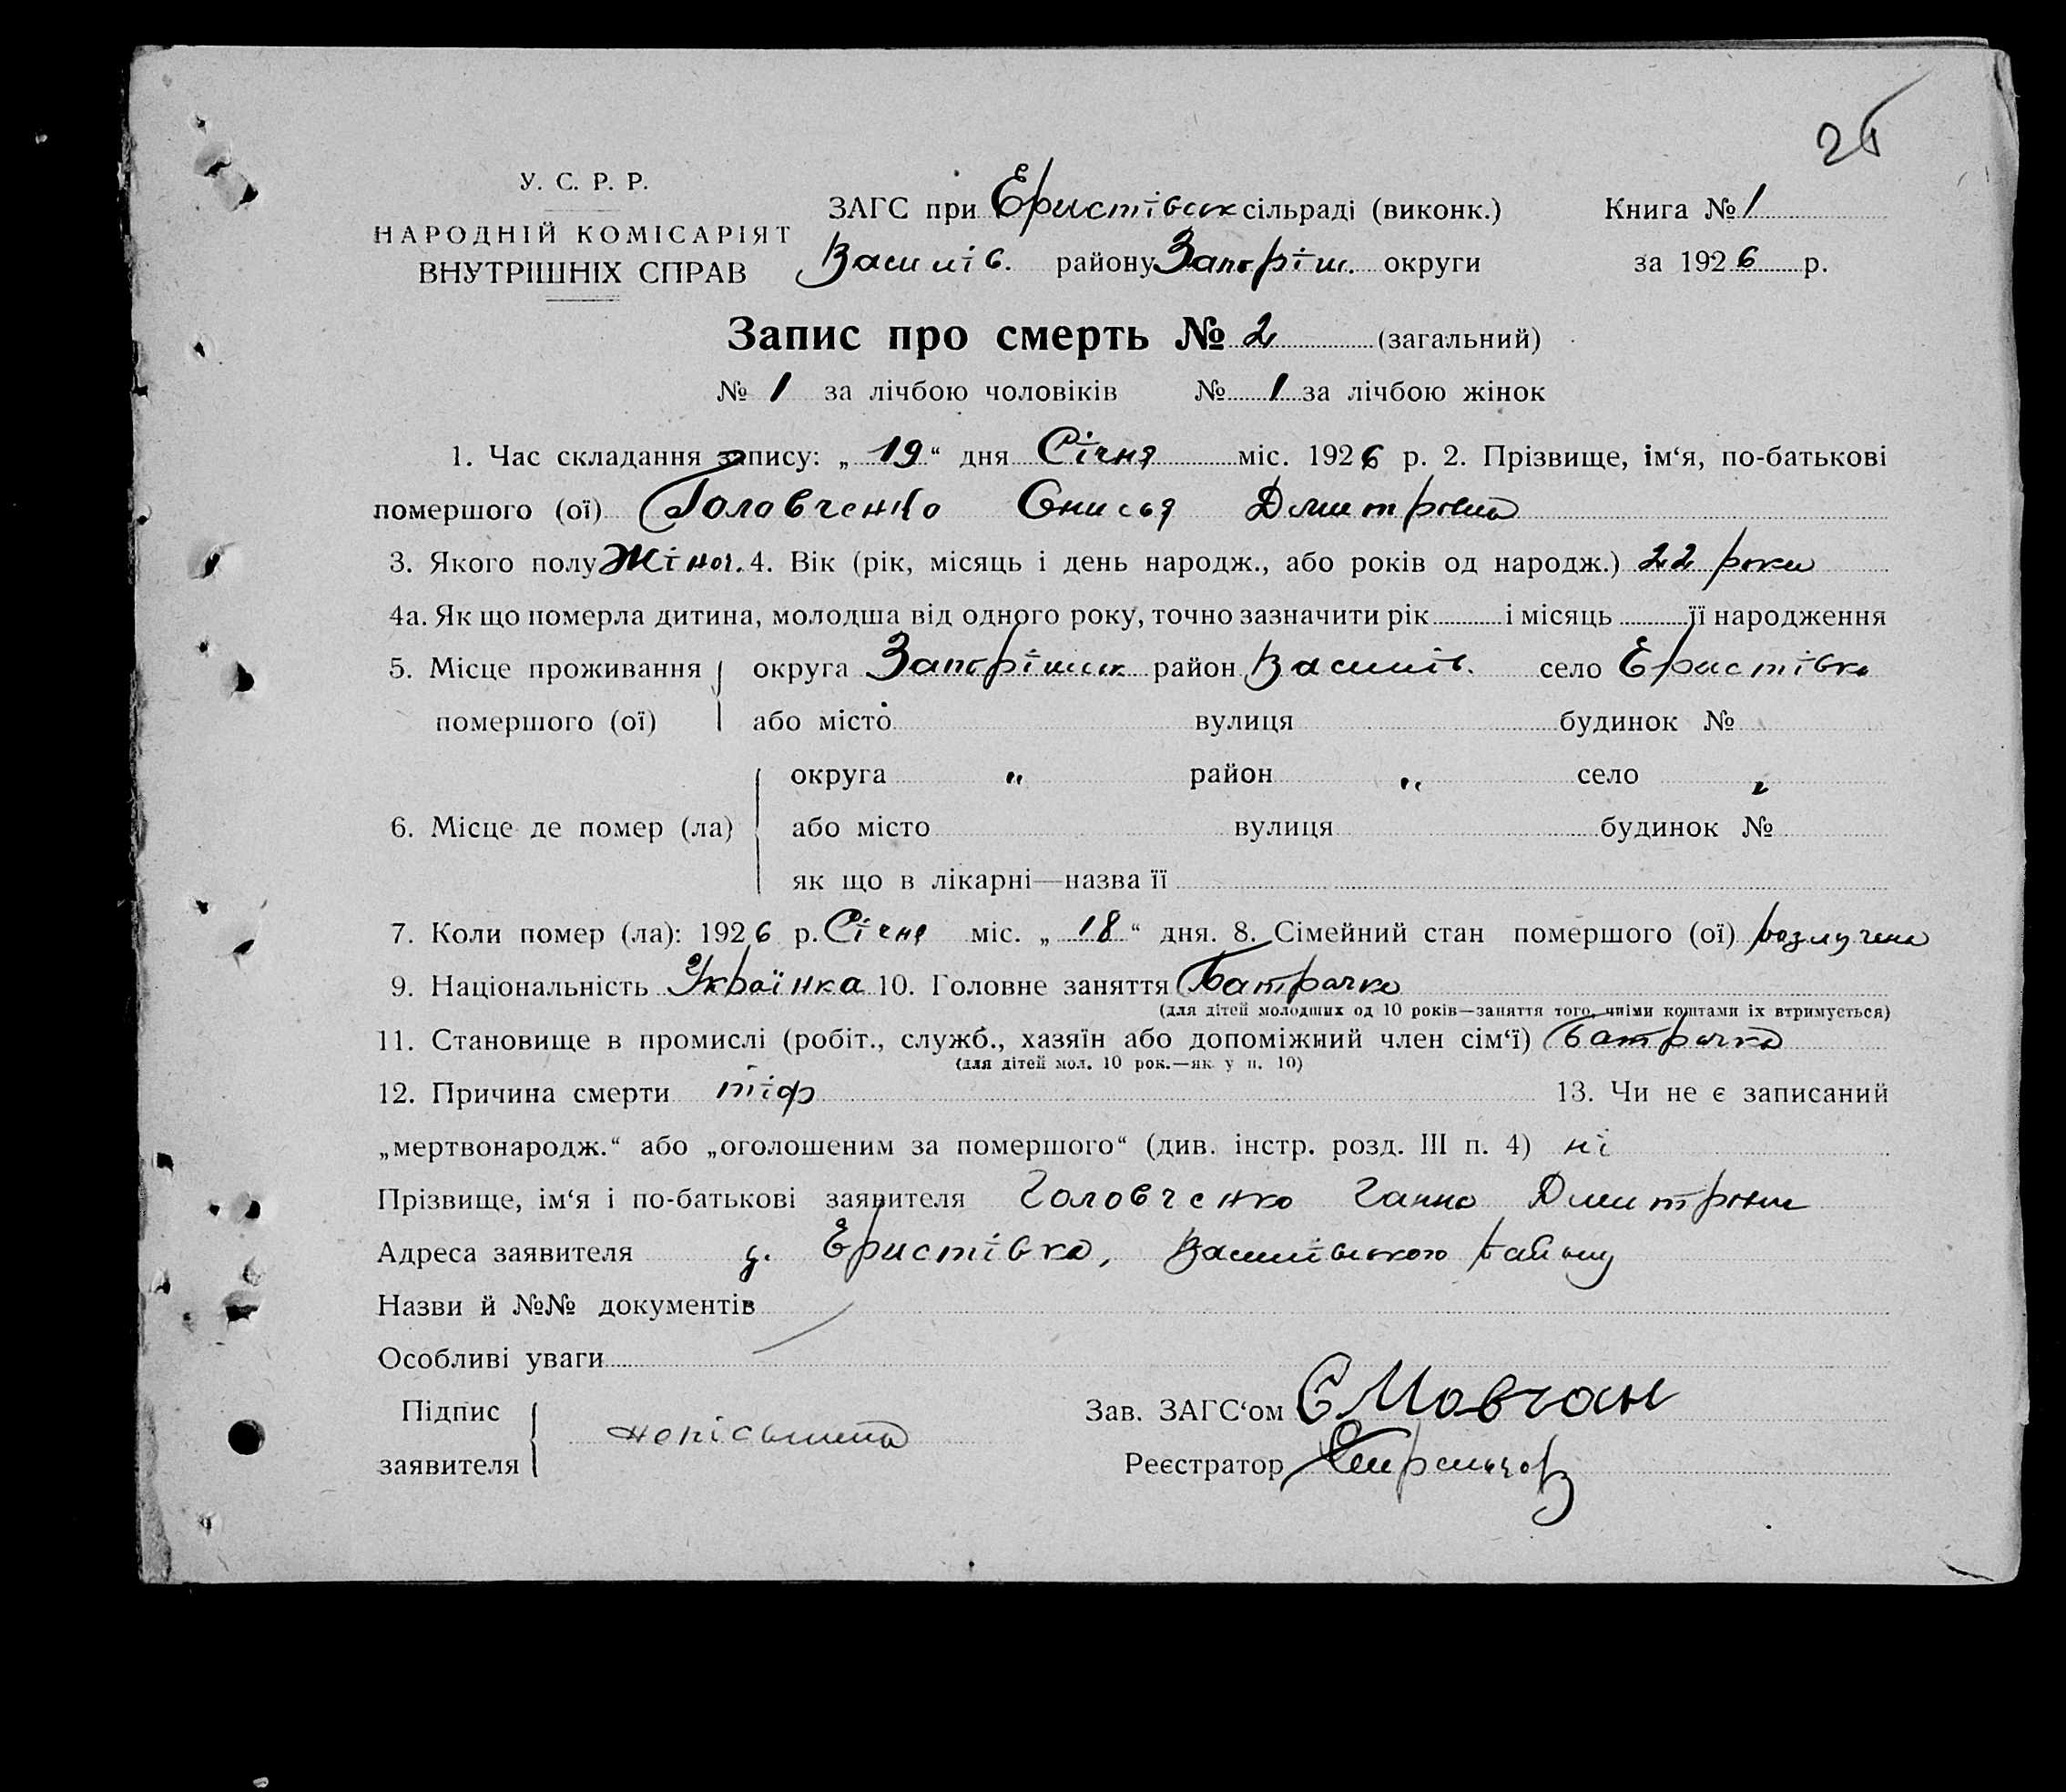 25
У. С. Р. Р.
НАРОДНІЙ КОМІСАРІЯТ
ВНУТРІШНІХ СПРАВ
ЗАГС при Еристівськ сільраді (виконк.) Книга № 1
Василів. району Запоріж. округи за 1926 р.
Запис про смерть № 2 (загальний)
№ 1 за лічбою чоловіків № 1 за лічбою жінок
1. Час складання запису: „ 19 “ дня Січня міс. 1926 р. 2. Прізвище, ім‘я, по-батькові
помершого (ої) Головченко Онисья Дмитровна
3. Якого полу Жіноч. 4. Вік (рік, місяць і день народж., або років од народж.) 22 роки
4а. Як що померла дитина, молодша від одного року, точно зазначити рік і місяць її народження
5. Місце проживання округа Запоріжськ район Василів. село Еристівка
помершого (ої) або місто вулиця будинок №
округа „ район „ село „
6. Місце де помер (ла) або місто вулиця будинок №
як що в лікарні—назва її
7. Коли помер (ла): 1926 р. Січня міс. „ 18 “ дня. 8. Сімейний стан помершого (ої) розлучена
9. Національність Українка 10. Головне заняття Батрачка
(для дітей молодших од 10 років—заняття того, чиїми коштами їх втримується)
11. Становище в промислі (робіт., служб., хазяїн або допоміжний член сім‘ї) батрачка
(для дітей мол. 10 рок.—як у п. 10)
12. Причина смерти тіф 13. Чи не є записаний
„мертвонародж.“ або „оголошеним за помершого“ (див. інстр. розд. III п. 4) ні
Прізвище, ім‘я і по-батькові заявителя Головченко Ганна Дмитровна
Адреса заявителя д. Еристівка, Василівського району
Назви й №№ документів
Особливі уваги
Підпис
заявителя
неписьмена
Зав. ЗАГС‘ом Є Мовчан
Реєстратор